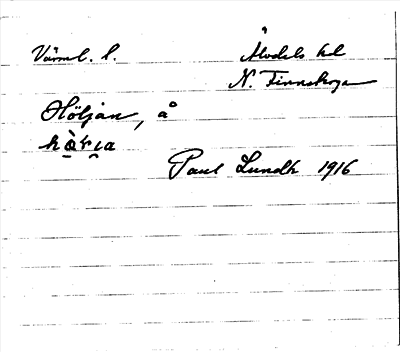 Värml. l.
Älvdals hd
N. Finnskoga
Höljan, å
hàrıa
Paul Lundh 1916